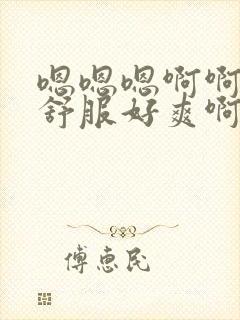 嗯嗯嗯啊啊
舒服好爽啊
傅惠民